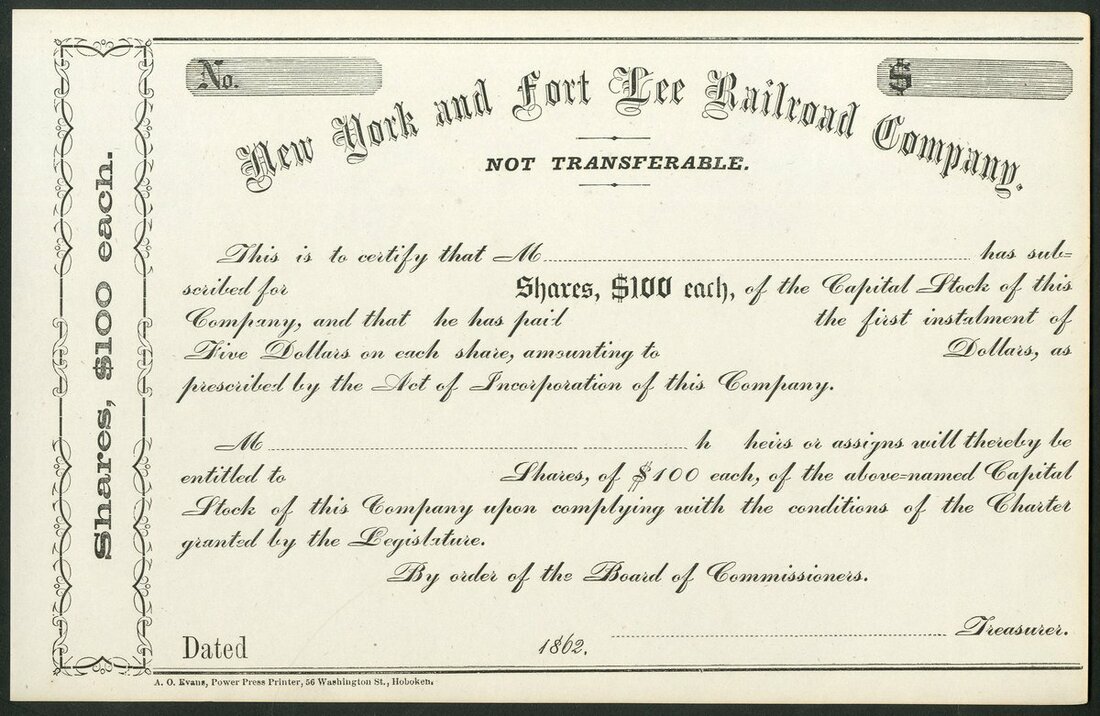 Shares, $100 each.
No.
$
New York and Fort Lee Railroad Company.
NOT TRANSFERABLE.
This is to certify that M has sub=
scribed for Shares, $100 each, of the Capital Stock of this
Company, and that he has paid the first instalment of
Five Dollars on each share, amounting to Dollars, as
prescribed by the Act of Incorporation of this Company.
M h heirs or assigns will thereby be
entitled to Shares, of $100 each, of the above=named Capital
Stock of this Company upon complying with the conditions of the Charter
granted by the Legislature.
By order of the Board of Commissioners.
Treasurer.
Dated 1862.
A. O. Evans, Power Press Printer, 56 Washington St., Hoboken.